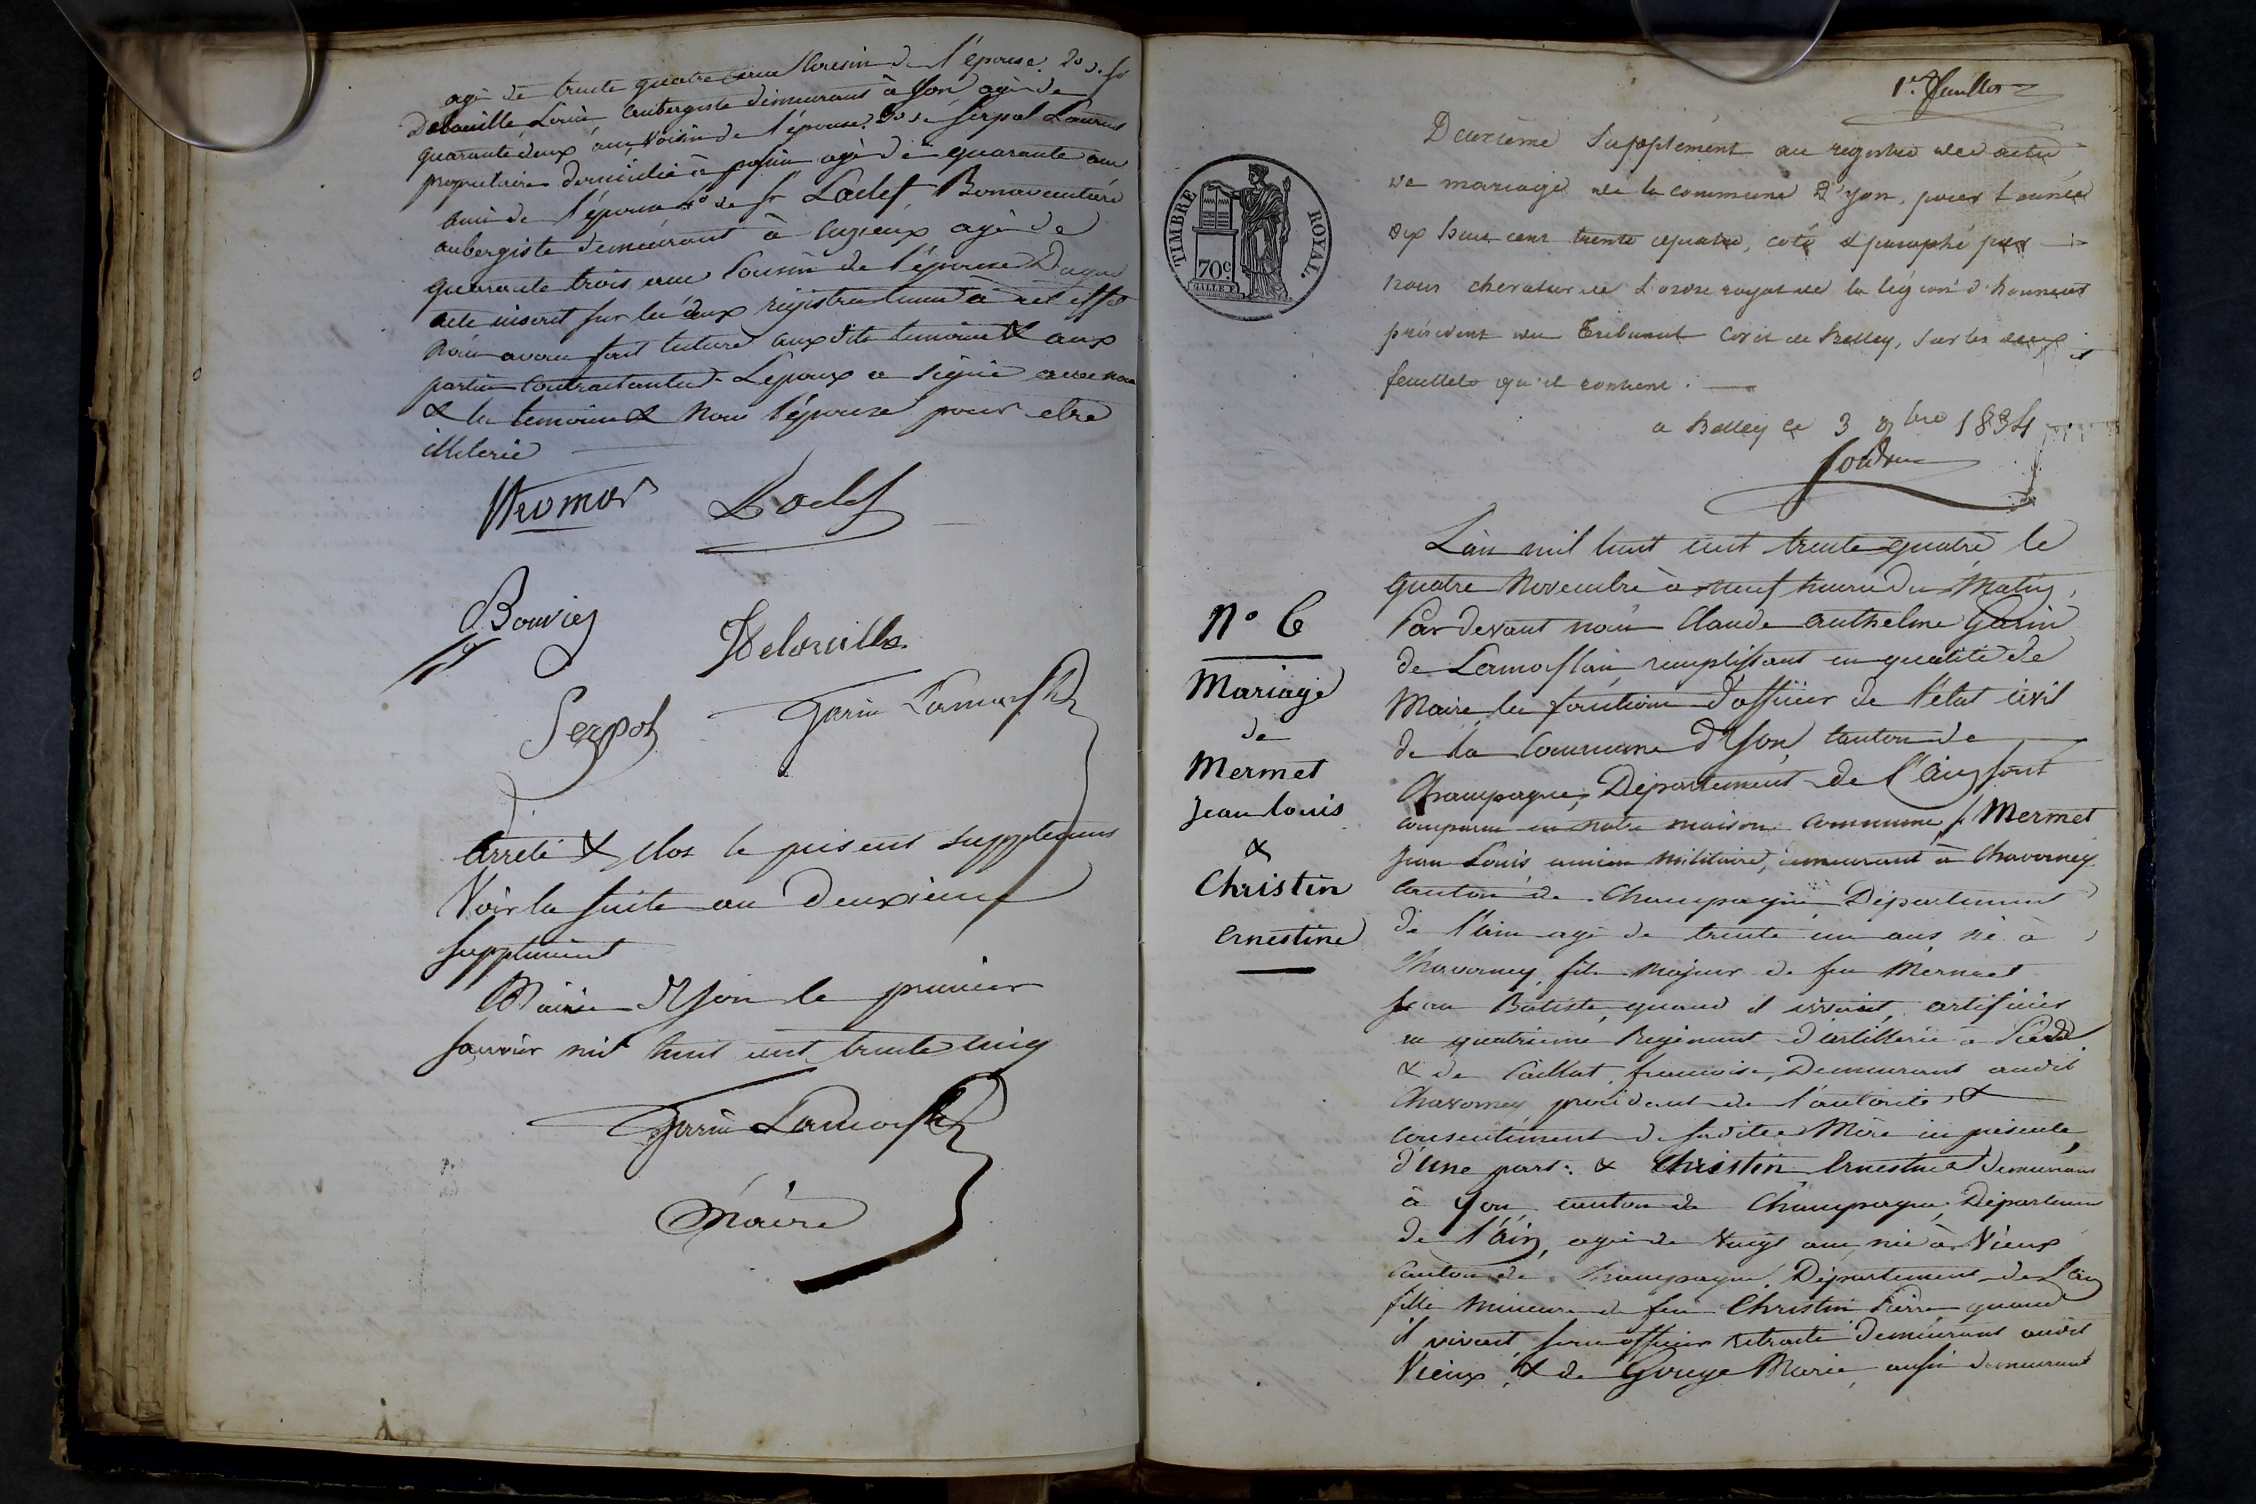 agé de trente quatre ans Cousin de l'épouse. 2º de sr
Delouille Louis aubergiste demeurant à Yon agé de
quarante deux ans, voisin de l'épouse. 3º de Serpol Laurent
proprietaire domicilié à agé de quarante ans
ami de l'épouse 4º de sr Laclef Bonaventure
aubergiste demeurant à Luzieux agé de
quarante trois ans Cousin de l'épouse Duquel
acte inscrit sur les deux registres tenus à cet effet
Nous avons fait lecture auxdits temoins & aux
parties contractantes. L'epoux a signé avec nous
& les temoins & Non l'épouse pour etre
illiterée
Laclef
Bouvier
Delouille
Serpol
Garin Lamorflan
Arrêté & clos le present supplement
Voir la suite au deuxieme
supplement
Mairie d'Yon le premier
Janvier mil huit cent trente cinq
Garin Lamorflan
Maire
1er feuillet
Deuxième Supplément au registre des actes
de mariage de la commune d'yon, pour l'année
dix huit cent trente quatre, coté & paraphé par
nous chevalier de L'ordre royal de la légion d'honneur
président du Tribunal Civil de Belley, sur les deux
feuillets qu'il contient.
a Belley ce 3 9bre 1834
TIMBRE ROYAL.
70c.
Nº 6
Mariage
de
Mermet
Jean Louis
&
Christin
Ernestine
L'an mil huit cent trente quatre le
quatre Novembre à neuf heures du Matin,
Par devant nous Claude Anthelme Garin
de Lamorflan remplissant en qualité de
Maire les fonctions d'officier de l'etat civil
de la Commune d'Yon, canton de
Champagne, Département de l'Ain, sont
comparus en notre maison commune, sr Mermet
Jean Louis ancien Militaire, demeurant à Chavornay
Canton de Champagne Département
de l'Ain agé de trente un ans né à
Chavornay fils Majeur de feu Mermet
Jean Batiste, quand il vivait, artificier
au quatrieme Regiment d'artillerie à Pied
& de Caillat, francoise, Demeurant audit
Chavornay, procédant de l'autorité &
consentement de sadite Mère ici présente,
d'une part. & Christin Ernestine demeurant
à Yon canton de Champagne, Département
de l'Ain, agée de vingt ans, née à Vieux
Canton de Champagne. Département de l'Ain
fille Mineure de feu Christin Pierre quand
il vivait, sous officier retraité demeurant audit
Vieux, & de Gouye Marie, aussi demeurant